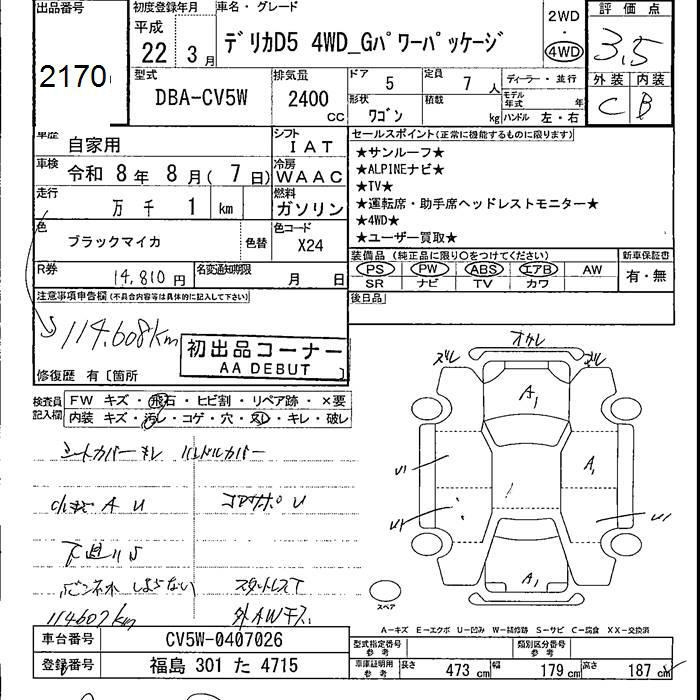 出品番号
2170
初度登録年月
平成
22 3月
車名・グレード
デリカD5 4WD_Gパワーパッケージ
2WD
・
4WD
評価点
3.5
外装 内装
C B
型式
DBA-CV5W
排気量
2400
CC
ドア
5
定員
7 人
形状
ワゴン
積載
kg
ディーラー・並行
モデル年式 年
ハンドル 左・右
車歴
自家用
シフト
IAT
車検
令和 8年 8月( 7日)
冷房
WAAC
走行
万 千 1 km
燃料
ガソリン
色
ブラックマイカ
色替
色コード
X24
R券
14,810円
名変通知期限
月 日
セールスポイント(正常に機能するものに限ります)
★サンルーフ★
★ALPINEナビ★
★TV★
★運転席・助手席ヘッドレストモニター★
★4WD★
★ユーザー買取★
装備品(純正品に限り○をつけてください)
PS PW ABS エアB AW
SR ナビ TV カワ
新車保証書
有・無
後日品
注意事項申告欄(不具合内容等は具体的に記入して下さい)
114.608km
初出品コーナー
AA DEBUT
修復歴 有〔箇所 〕
検査員記入欄
FW キズ・飛石・ヒビ割・リペア跡・×要
内装 キズ・汚レ・コゲ・穴・スレ・キレ・破レ
シートカバーキレ ハンドルカバー
A U
コアサポ U
下廻りS
114607km
外AWキズ
オカレ
ズレ
ズレ
A1
A1
A1
スペア
A-キズ E-エクボ U-凹み W-補修跡 S-サビ C-腐食 XX-交換済
車台番号
CV5W-0407026
登録番号
福島 301 た 4715
型式指定番号
参考
類別区分番号
参考
車庫証明用
参考
長さ 473 cm
幅 179 cm
高さ 187 cm